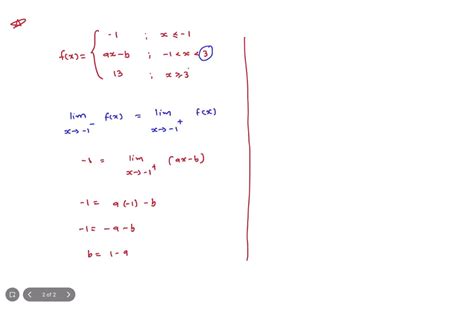 -1 ; x ≤ -1
f(x) = { ax-b ; -1 < x < 3
13 ; x ≥ 3
lim x→-1⁻ f(x) = lim x→-1⁺ f(x)
-1 = lim x→-1⁺ (ax-b)
-1 = a(-1) -b
-1 = -a-b
b = 1-a
2 of 2